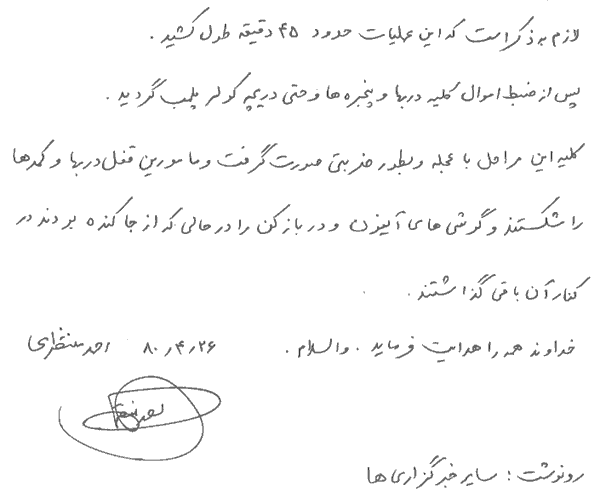 لازم به ذکر است که این عملیات حدود ۴۵ دقیقه طول کشید .
پس از ضبط اموال کلیه دربها و پنجره ها و حتی دریچه کولر پلمب گردید .
کلیه این مراحل با عجله و بطور ضربتی صورت گرفت و مامورین قفل دربها و کمدها
را شکستند و گوشی های آیفون و در باز کن را در حالی که از جا کنده بودند در
کنار آن باقی گذاشتند .
خداوند همه را هدایت فرماید . والسلام . ۸۰٫۴٫۲۶ احمد منتظری
رونوشت : سایر خبرگزاری ها